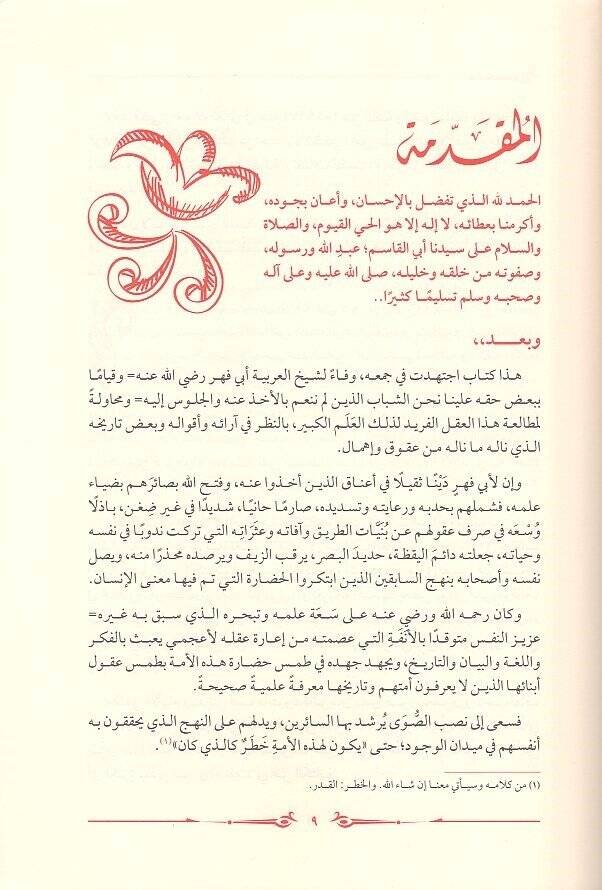 المُقدّمَة
الحمد لله الـذي تفضل بالإحسان، وأعان بجوده،
وأكرمنا بعطائه، لا إله إلا هو الحي القيوم، والصلاة
والسلام على سيدنا أبي القاسم؛ عبدِ الله ورسوله،
وصفوته من خلقه وخليله، صلى الله عليه وعلى آله
وصحبه وسلم تسليمًا كثيرًا..
وبعـــد،،
هـذا كتـاب اجتهـدت في جمعـه، وفـاءً لشيخ العربيـة أبي فهـر رضي الله عنـه= وقيامًا
ببعض حقـه علينا نحـن الشباب الذيـن لم ننعم بالأخـذ عنـه والجلـوس إليـه= ومحاولةً
لمطالعـة هـذا العقـل الفريـد لذلـك العَلَـم الكبيـر، بالنظر في آرائـه وأقوالـه وبعـض تاريخـه
الذي ناله ما ناله من عقوق وإهمال.
وإن لأبي فهـرٍ دَيْنًـا ثقيلًا في أعنـاق الذيـن أخـذوا عنـه، وفتـح الله بصائرَهـم بضيـاء
علمـه، فشـملهم بحدبـه ورعايتـه وتسـديده، صارمًـا حانيًـا، شـديدًا في غيـر ضِغـن، بـاذلًا
وُسْـعَه في صرف عقولهـم عـن بُنَيَّات الطريـق وآفاتـه وعثَرَاتِـه التي تركـت ندوبًا في نفسـه
وحياتـه، جعلته دائـمَ اليقظة، حديدَ البصر، يرقب الزيف ويرصده محذرًا منه، ويصل
نفسـه وأصحابـه بنهـج السـابقين الذيـن ابتكـروا الحضـارة التـي تـم فيهـا معنـى الإنسـان.
وكان رحمـه الله ورضي عنـه علـى سَـعَة علمـه وتبحـره الـذي سـبق بـه غيـره=
عزيـز النفـس متوقـدًا بالأَنَفَـةِ التـي عصمتـه مـن إعـارة عقلـه لأعجمـي يعبـث بالفكـر
واللغـة والبيـان والتاريـخ، ويجهـد جهـده في طمـس حضـارة هـذه الأمـة بطمـس عقـول
أبنائهـا الذيـن لا يعرفـون أمتهـم وتاريخهـا معرفـةً علميـةً صحيحـةً.
فسعى إلى نصب الصُّوَى يُرشد بها السائرين، ويدلهـم على النهج الذي يحققون به
أنفسهم في ميدان الوجود؛ حتى «يكون لهذه الأمةِ خَطَرٌ كالذي كان»(١).
(١) من كلامـه وسيـأتي معنا إن شاء الله. والخطر: القدر.
٩